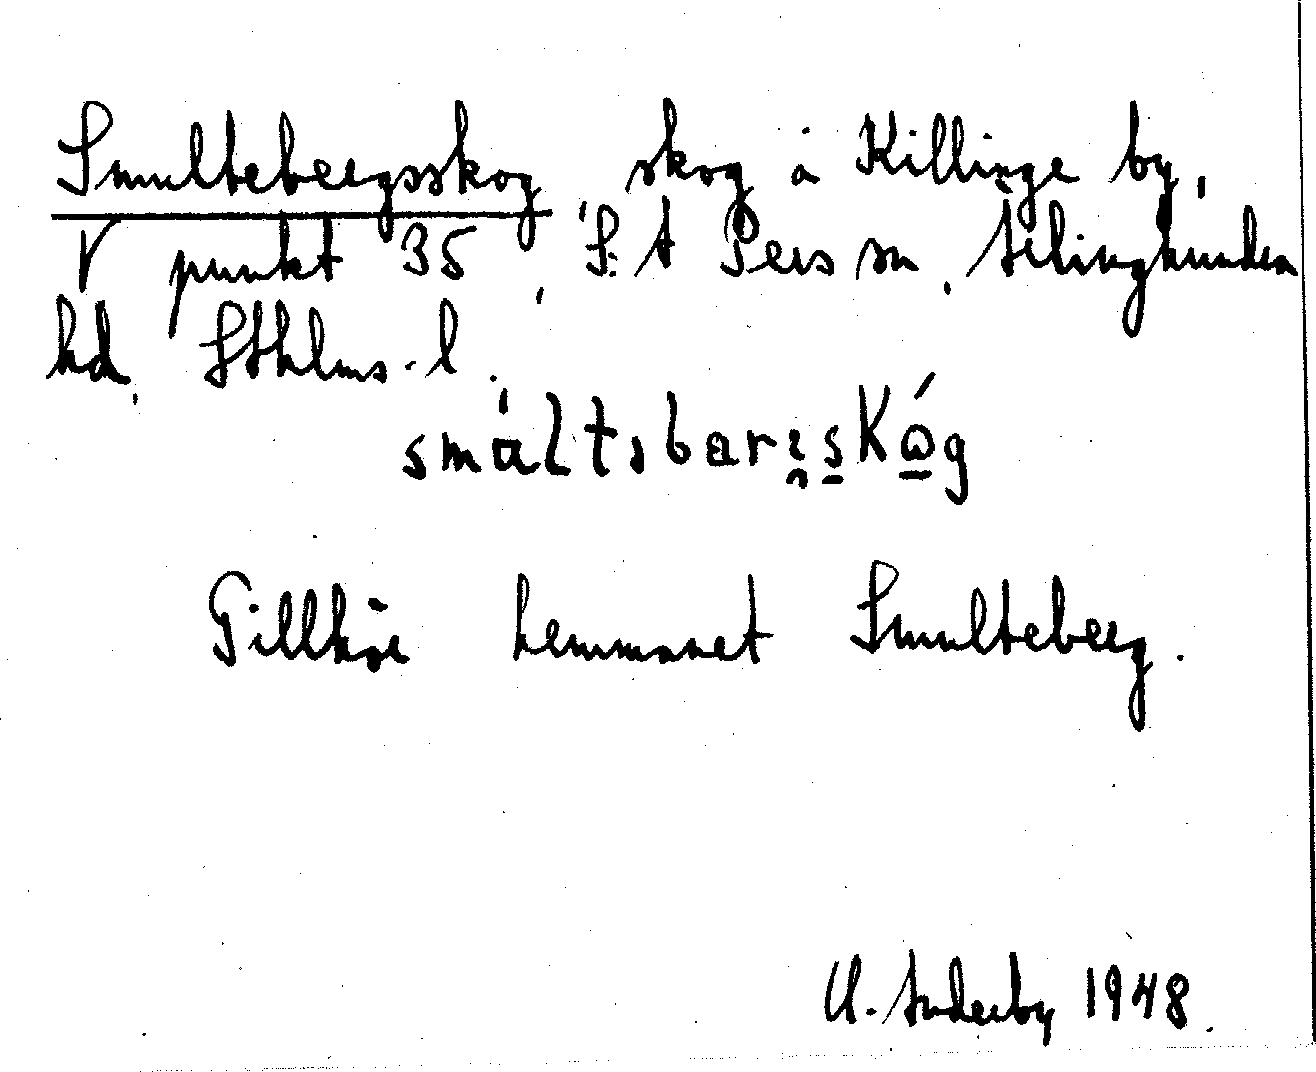 Smultebergsskog, skog å Killinge by,
V punkt 35, S:t Pers sn, Ärlinghundra
hd, Sthlms. l.
smáltəbarɪsKóg
Tillhör hemmanet Smulteberg.
U. Inderby 1948.